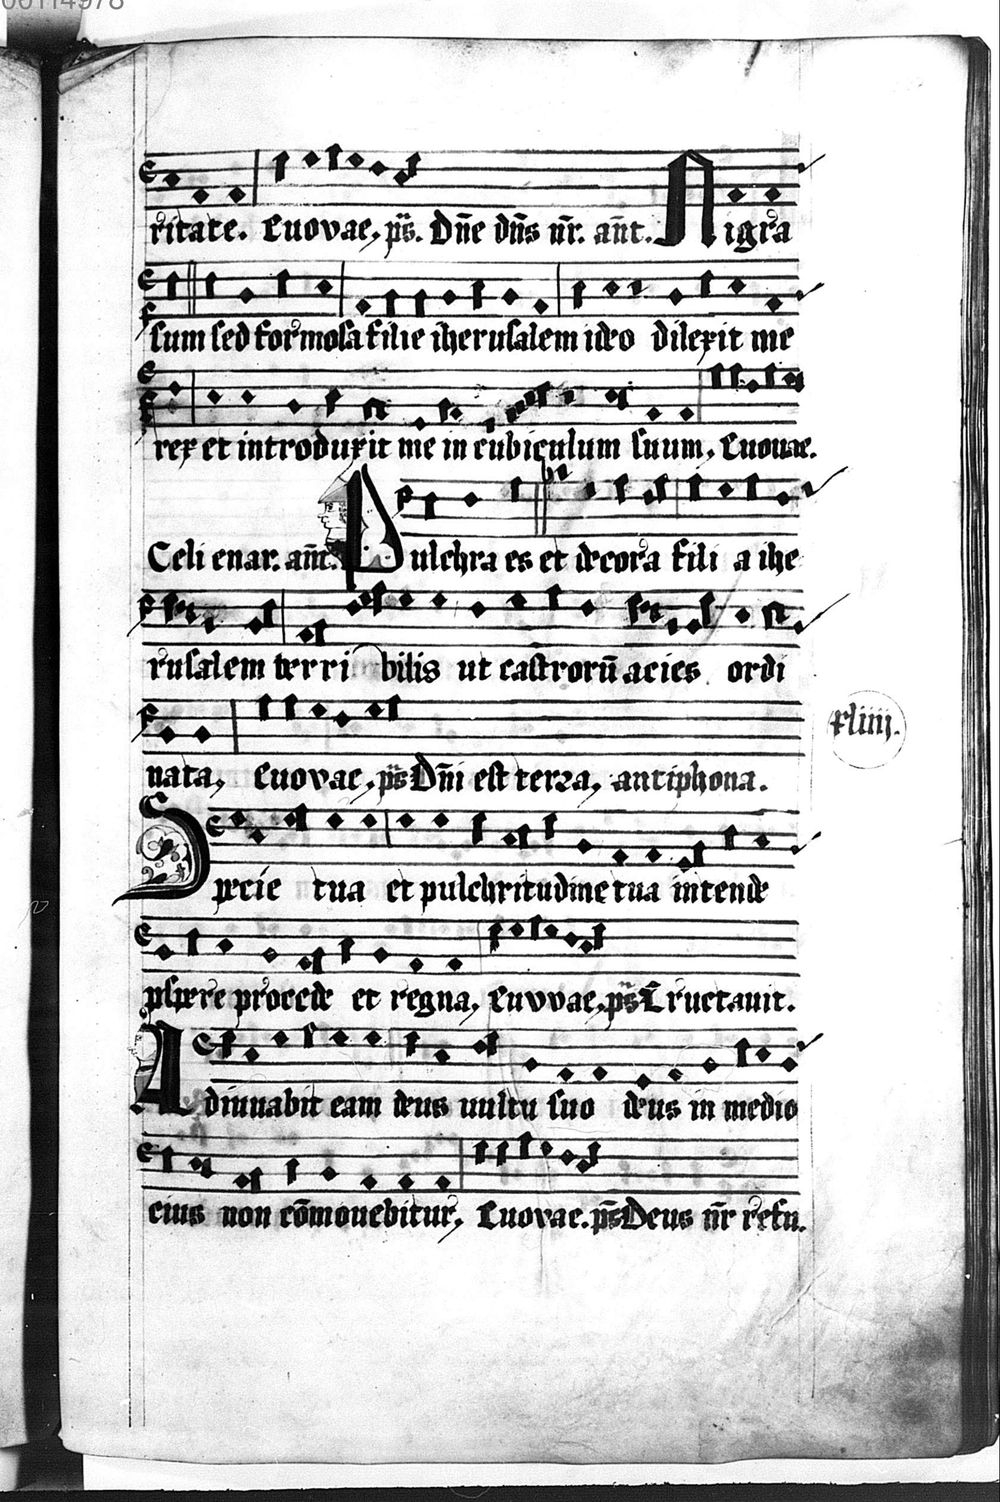 00114978
ritate. Euovae. ps̄. Dn̄e dn̄s nr̄. an̄t. Nigra
sum sed formosa filie iherusalem ideo dilexit me
rex et introduxit me in cubiculum suum. Euouae.
Celi enar. an̄t. Pulchra es et decora fili a ihe
rusalem terri bilis ut castrorū acies ordi
nata, Euovae, ps̄ Dn̄i est terra, antiphona.
xliiij.
Specie tua et pulchritudine tua intende
pspere procede et regna, Euvvae, ps̄ Eructauit.
Adiuuabit eam deus uultu suo deus in medio
eius non cōmouebitur, Euovae. ps̄ Deus nr̄ refu.